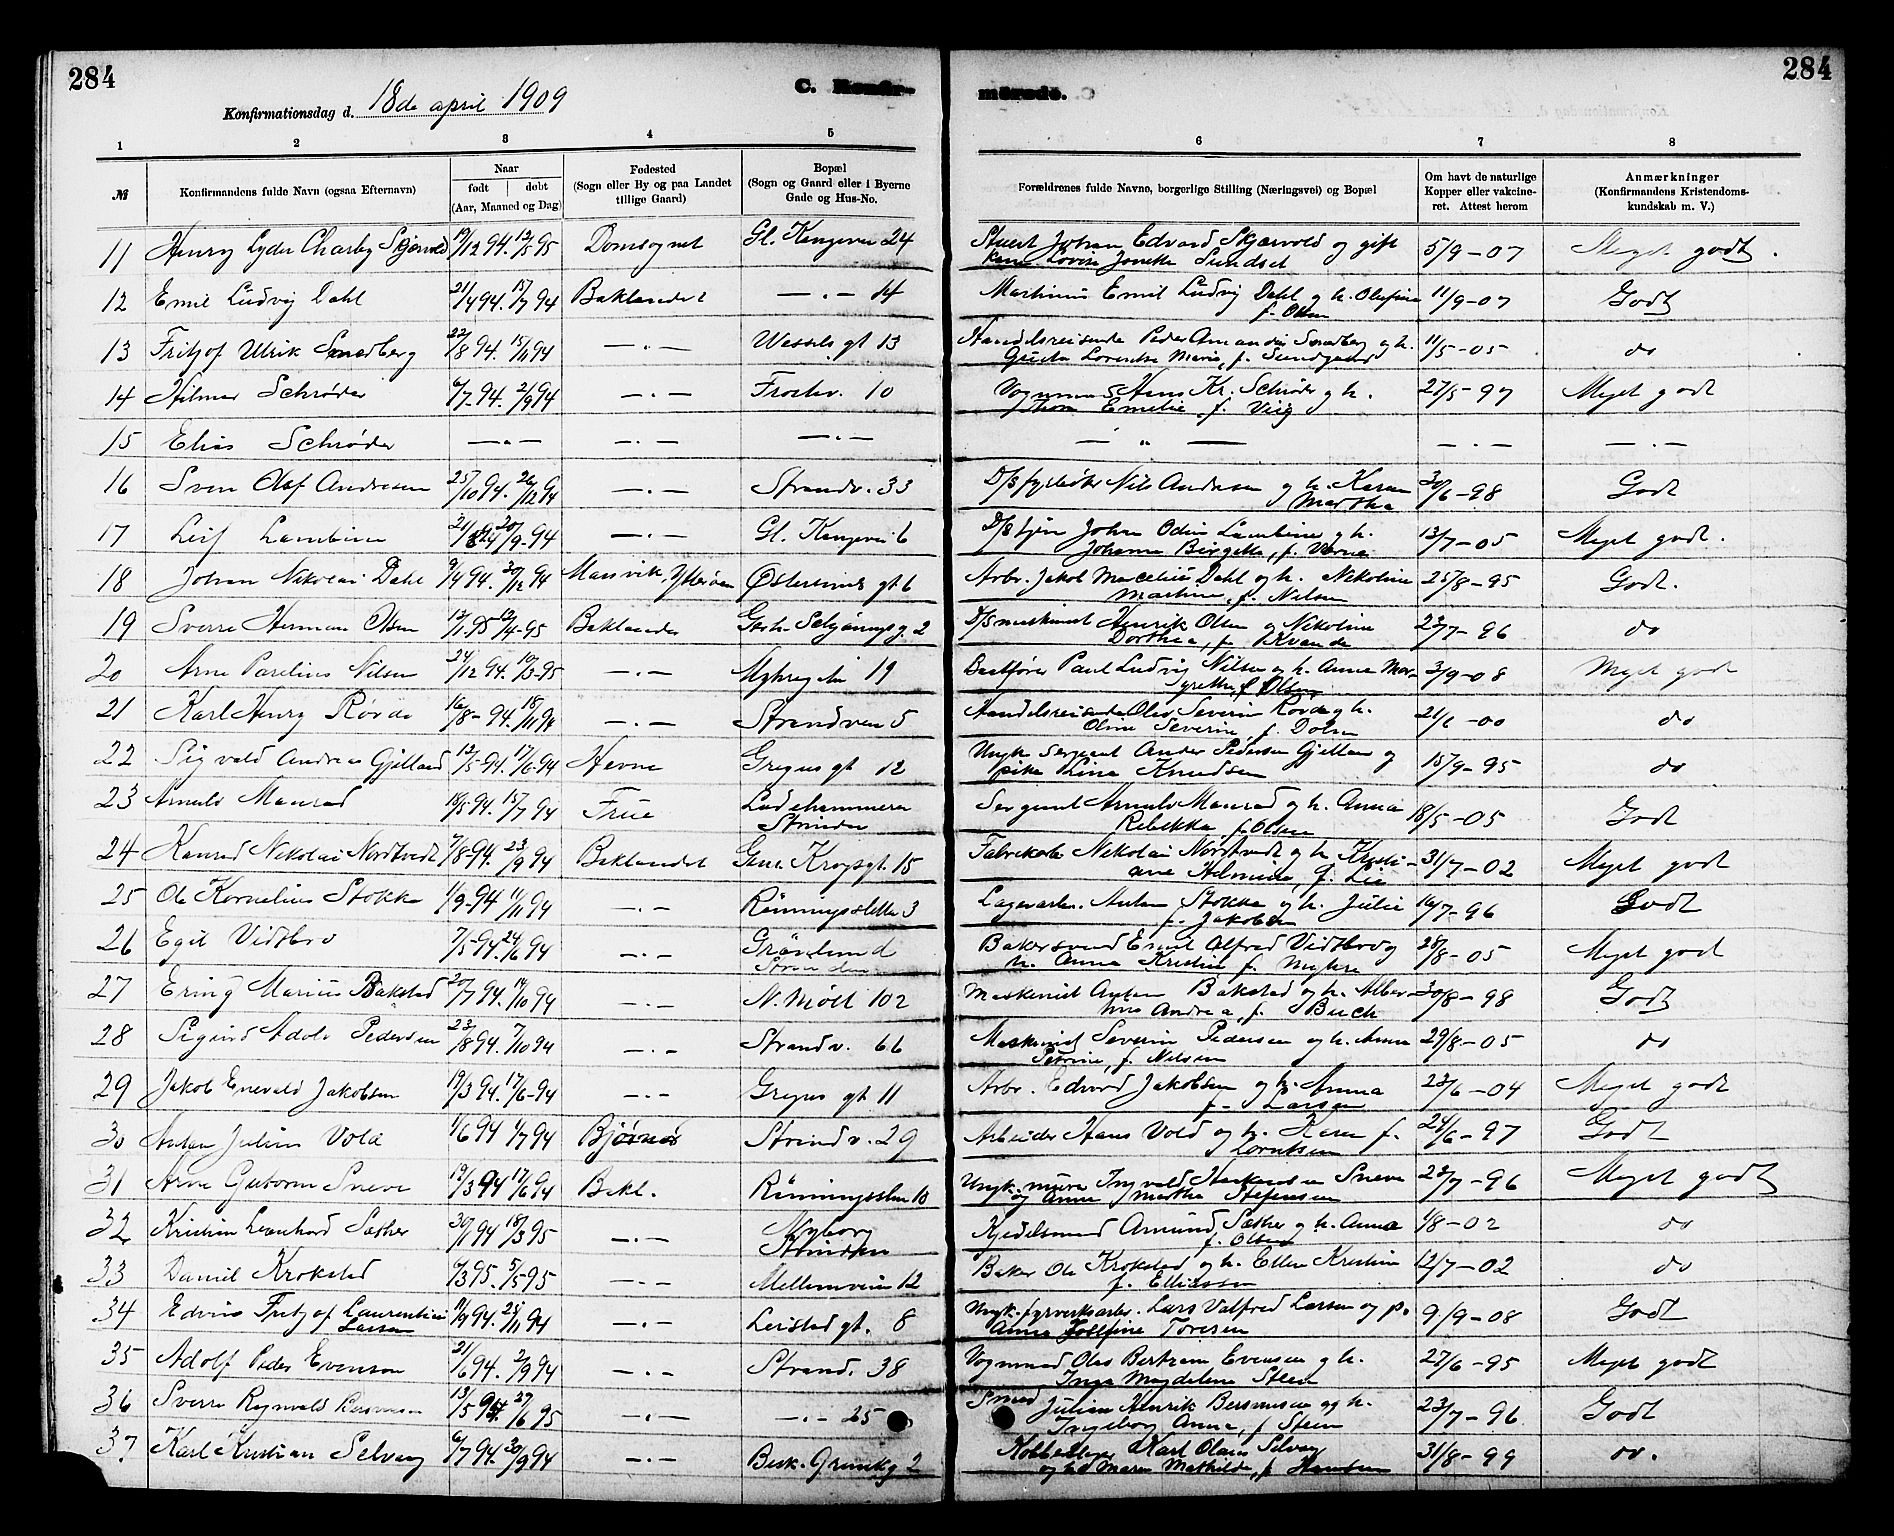 284
Konfirmationsdag d. 18de april 1909
C. Konfir-
merede.
284
1 2 3 4 5 6 7 8
№ Konfirmandens fulde Navn (ogsaa Efternavn) Naar født døbt (Aar, Maaned og Dag) Fødested (Sogn eller By og paa Landet tillige Gaard) Bopæl (Sogn og Gaard eller i Byerne Gade og Hus-No. Forældrenes fulde Navne, borgerlige Stilling (Næringsvei) og Bopæl Om havt de naturlige Kopper eller vakcineret. Attest herom Anmærkninger (Konfirmandens Kristendomskundskab m. V.)
11 Henry Lyder Charley Skjærvold 19/12 94. 12/5 95 Domsognet Gl. Kongevei 24 Stuert Johan Edvard Skjærvold og gift 5/9-07 Meget godt.
Jonette Sundset
12 Emil Ludvig Dahl 21/4 94. 15/7 94 Baklandet — " — 14 Martinius Emil Ludvig Dahl og h. Olufine 11/9-07 Godt
f. Olsen
13 Fritjof Ulrik Smedberg 22/8 94. 15/11 94 — " — Wessels gt 13 Handelsreisende Peder og h. 11/5-05 do
Lorentse Marie, f. Sundgaard
14 Hilmar Schrøder 6/7-94. 2/9 94 — " — 10 Vognmand Hans Kr. Schrøder og h. 27/5-97 Meget godt
Emelie, f. Viig
15 Elias Schrøder — " — — " — — " — — " — — " — — " —
16 Sven Olaf Andresen 25/10 94. 26/12 94 — " — Strandv. 33 D/s fyrbøder Nils Andresen og h. Karen 30/6-98 Godt
Martha
17 Leif Lambine 20/9-94 — " — Gl. Kongevei 6 Johan Odin Lambine og h. 13/7-05 Meget godt.
Johanna Birgitte, f. Værne
18 Johan Nikolai Dahl 9/4 94. 30/12 94 Ytterøen Østersunds gt 6 Arbr. Jakob Marcelius Dahl og h. Nikoline 25/8-95 Godt.
Martine, f. Nilsen
19 Sverre Herman Olsen 13/1-95 Baklandet 2 D/s maskinist Henrik Olsen og Nikoline 23/7-96 do
Dorthea, f. Kvande
20 Arne Parelius Nilsen 24/12 94. 10/3-95 — " — 19 Paul Ludvig Nilsen og h. Anna Mar- 3/9-08 Meget godt
grethe, f. Olsen
21 Karl Henry Rövde 16/8-94. 18/11 94 — " — Strandveien 5 Handelsreisende Olav Severin Rövde og h. -00 do
Oline Severine, f. Dolsen
22 Sigvald Andreas Gjelland 12/5-94. 17/6-94 Hevne Gregus gt 12 Ungk. Sergeant Ander Pedersen Gjelland og 15/9-95 do
pike Lina Knudsen
23 Arnulv Manrad 15/7 94 Frue Ladehammeren Sergeant Arnulv Manrad og h. Anna 18/5-05 Godt
Strinden Rebekka, f. Olsen
24 Konrad Nikolai Nordtvedt 7/8-94. 23/9 94 Baklandet Gen. Krogsgt. 15 Nikolai Nordtvedt og h. Kristi- 31/7-02 Meget godt
ane Helmine, f. Lie
25 Ole Kornelius Stokke 1/9-94 11/11 94 — " — Rönningssletta 3 Lagerarb. Anton Stokke og h. Julie 16/7-96 Godt
f. Jakobsen
26 Egil Vidtbro 7/5-94. 24/6 94 — " — Grönlund Bakersvend Emil Alfred Vidtbro og 28/8-05 Meget godt
Strinden h. Anna Kristine f. Myhre
27 Ering Marius Bakstad 20/7 94. 14/10 94 — " — N. Möll. 102 Maskinist Anton Bakstad og h. Alber- 30/8-98 Godt
Andrea, f. Buch
28 Sigurd Adolv Pedersen 23/8 94. 7/10 94 — " — Strandv. 66 Maskinist Severin Pedersen og h. Anna 29/8-05 do
Petrine, f. Nilsen
29 Jakob Enevald Jakobsen 19/3 94. 17/6-94 — " — Gregus gt. 11 Arbr. Edvard Jakobsen og h. Anna 23/6-04 Meget godt
f. Larsen
30 Anton Julius Vold 1/6 94 1/7 94 Bjørnør Strandv. 29 Arbeider Hans Vold og h. Karen f. 24/6-97 Godt
Lorntsen
31 Arne Guttorm Sneve 19/3 94 17/6 94 Bakl. 10 Ungk. murer Ingvald Sneve 23/7-96 Meget godt
og Anna Martha Steffensen
32 Kristian Leonhard Sæther 30/11 94 18/3 95 Nyborg Amund Sæther og h. Anna 1/8-02 do
Strinden f. Olsen
33 Daniel Krokstad 6/3 95. 5/5-95 — " — Mellemveien 12 Baker Ole Krokstad og h. Ellen Kristine 12/7-02 do
f. Elliassen
34 Edvin Fritjof Laurentius 25/11 94 — " — Leistad gt. 8 Ungk. fyrverksarbr. Lars Valfred Larsen og p. 9/9-08 Godt
Larsen Anna Josefine Toresen
35 Adolf Peder Evensen 21/6 94. 2/9 94 — " — Strand. 38 Vognmand Olas Bertram Evensen og h. 27/6-95 Meget godt
Inga Magdelene Steen
36 Sverre Ragnvald Bersvensen 13/5 — " — — " — 25 Smed Julian Henrik Bersvensen og h. 23/7-96 Godt
Ingeborg Anna, f. Steen
37 Karl Kristian Selvaag 6/7 94. 30/9 94 — " — Karl Olaus Selvaag 31/8-99 do.
Maren Mathilde, f. Hansen